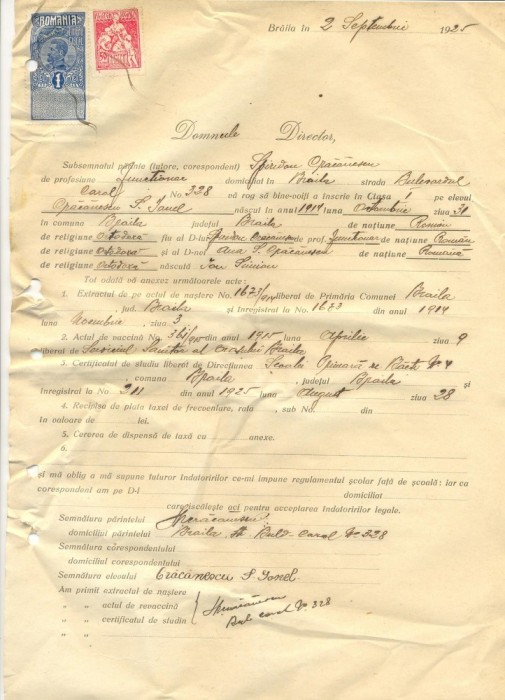 ROMANIA
1
Brăila în 2 Septembrie 1925
Domnule Director,
Subsemnatul părinte (tutore, corespondent) Spiridon Crăcănescu
de profesiune funcționar domiciliat în Brăila strada Bulevardul
Carol No 328 vă rog să bine-voiți a înscrie în Clasa I pe elevul
Crăcănescu S. Ionel născut în anul 1914 Octombrie 31
în comuna Braila județul Braila de națiune Român
de religiune ortodoxă fiu al D-lui Spiridon Crăcănescu de prof. funcționar de națiune Român
de religiune ortodoxă și al D-nei Ana S. Crăcănescu de națiune Română
de religiune ortodoxă născută Ion Simion
Tot odată vă anexez următoarele acte:
1. Extractul de pe actul de naștere No 1673/914 liberat de Primăria Comunei Braila
, jud. Braila și înregistrat la No 1673 din anul 1914
luna Noembrie, ziua 3
2. Actul de vaccină No din anul 1915 luna Aprilie ziua 9
liberat de Serviciul Sanitar al Orașului Braila
3. Certificatul de studiu liberat de Direcțiunea Scoala Primară de Băeti No 4
, comuna Braila, județul Braila și
înregistrat la No 211 din anul 1925 luna August ziua 28
4. Recipisa de plata taxei de frecventare, rata , sub No din
în valoare de lei.
5. Cererea de dispensă de taxă cu anexe.
6.
și mă oblig a mă supune tuturor îndatoririlor ce-mi impune regulamentul școlar față de școală: iar ca
corespondent am pe D-l domiciliat
carenscălește aci pentru acceptarea îndatoririlor legale.
Semnătura părintelui
domiciliul părintelui Braila St Buld- Carol No 328
Semnătura corespondentului
domiciliul corespondentului
Semnătura elevului Crăcănescu S. Ionel
Am primit extractul de naștere
„ „ actul de revaccină
„ „ certificatul de studiu Bul. carol No 328